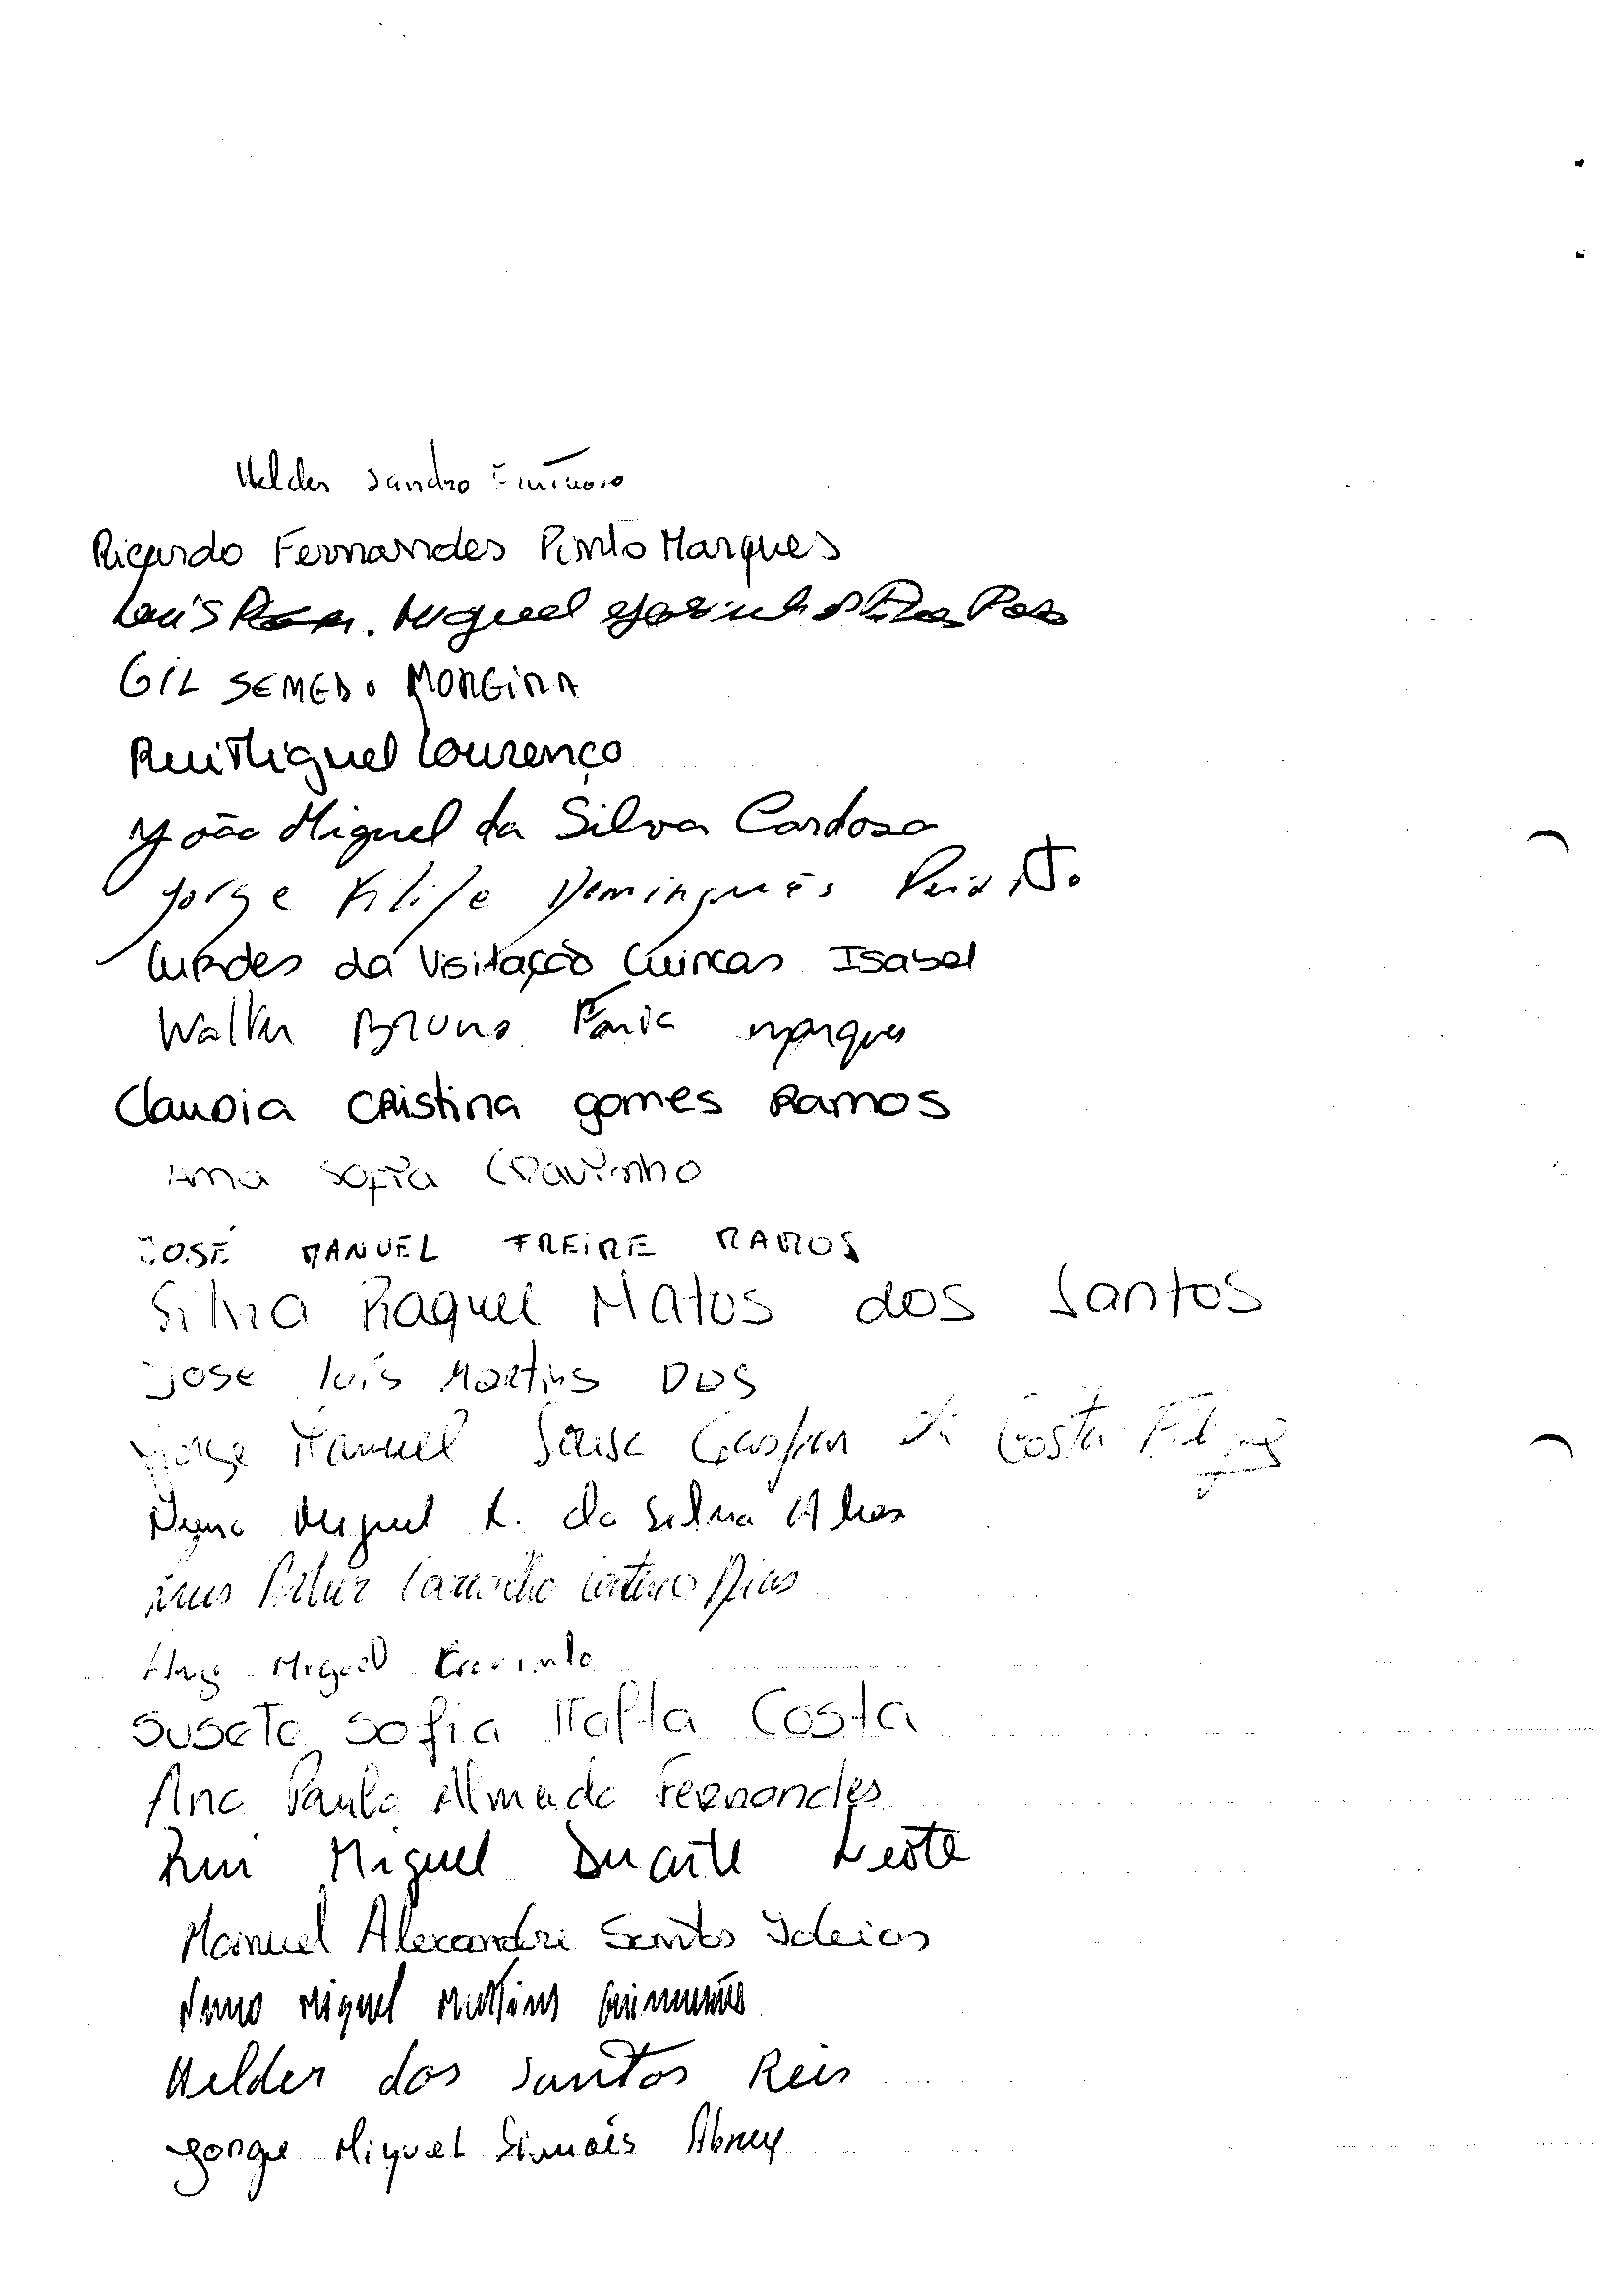 Helder Sandro
Ricardo Fernandes Pinto Marques
Luís Miguel
GIL SEMEDO MOREIRA
Rui Miguel Lourenço
João Miguel da Silva Cardoso
Jorge Filipe Domingues
Lurdes da Visitação Isabel
Walter Bruno Faria Marques
Claudia Cristina Gomes Ramos
Ana Sofia Cravinho
JOSÉ MANUEL FREIRE RAMOS
Silvia Raquel Matos dos Santos
José Luís Martins Dos
Jorge Manuel Sousa Gaspar da Costa
Nuno Miguel R. da Silva Alves
Dias
Hugo Miguel
Susete Sofia Mafta Costa
Ana Paula Almada Fernandes
Rui Miguel Duarte Leote
Manuel Alexandre Santos Ideias
Nuno Miguel Martins Guimarães
Helder dos Santos Reis
Jorge Miguel Simões Abreu